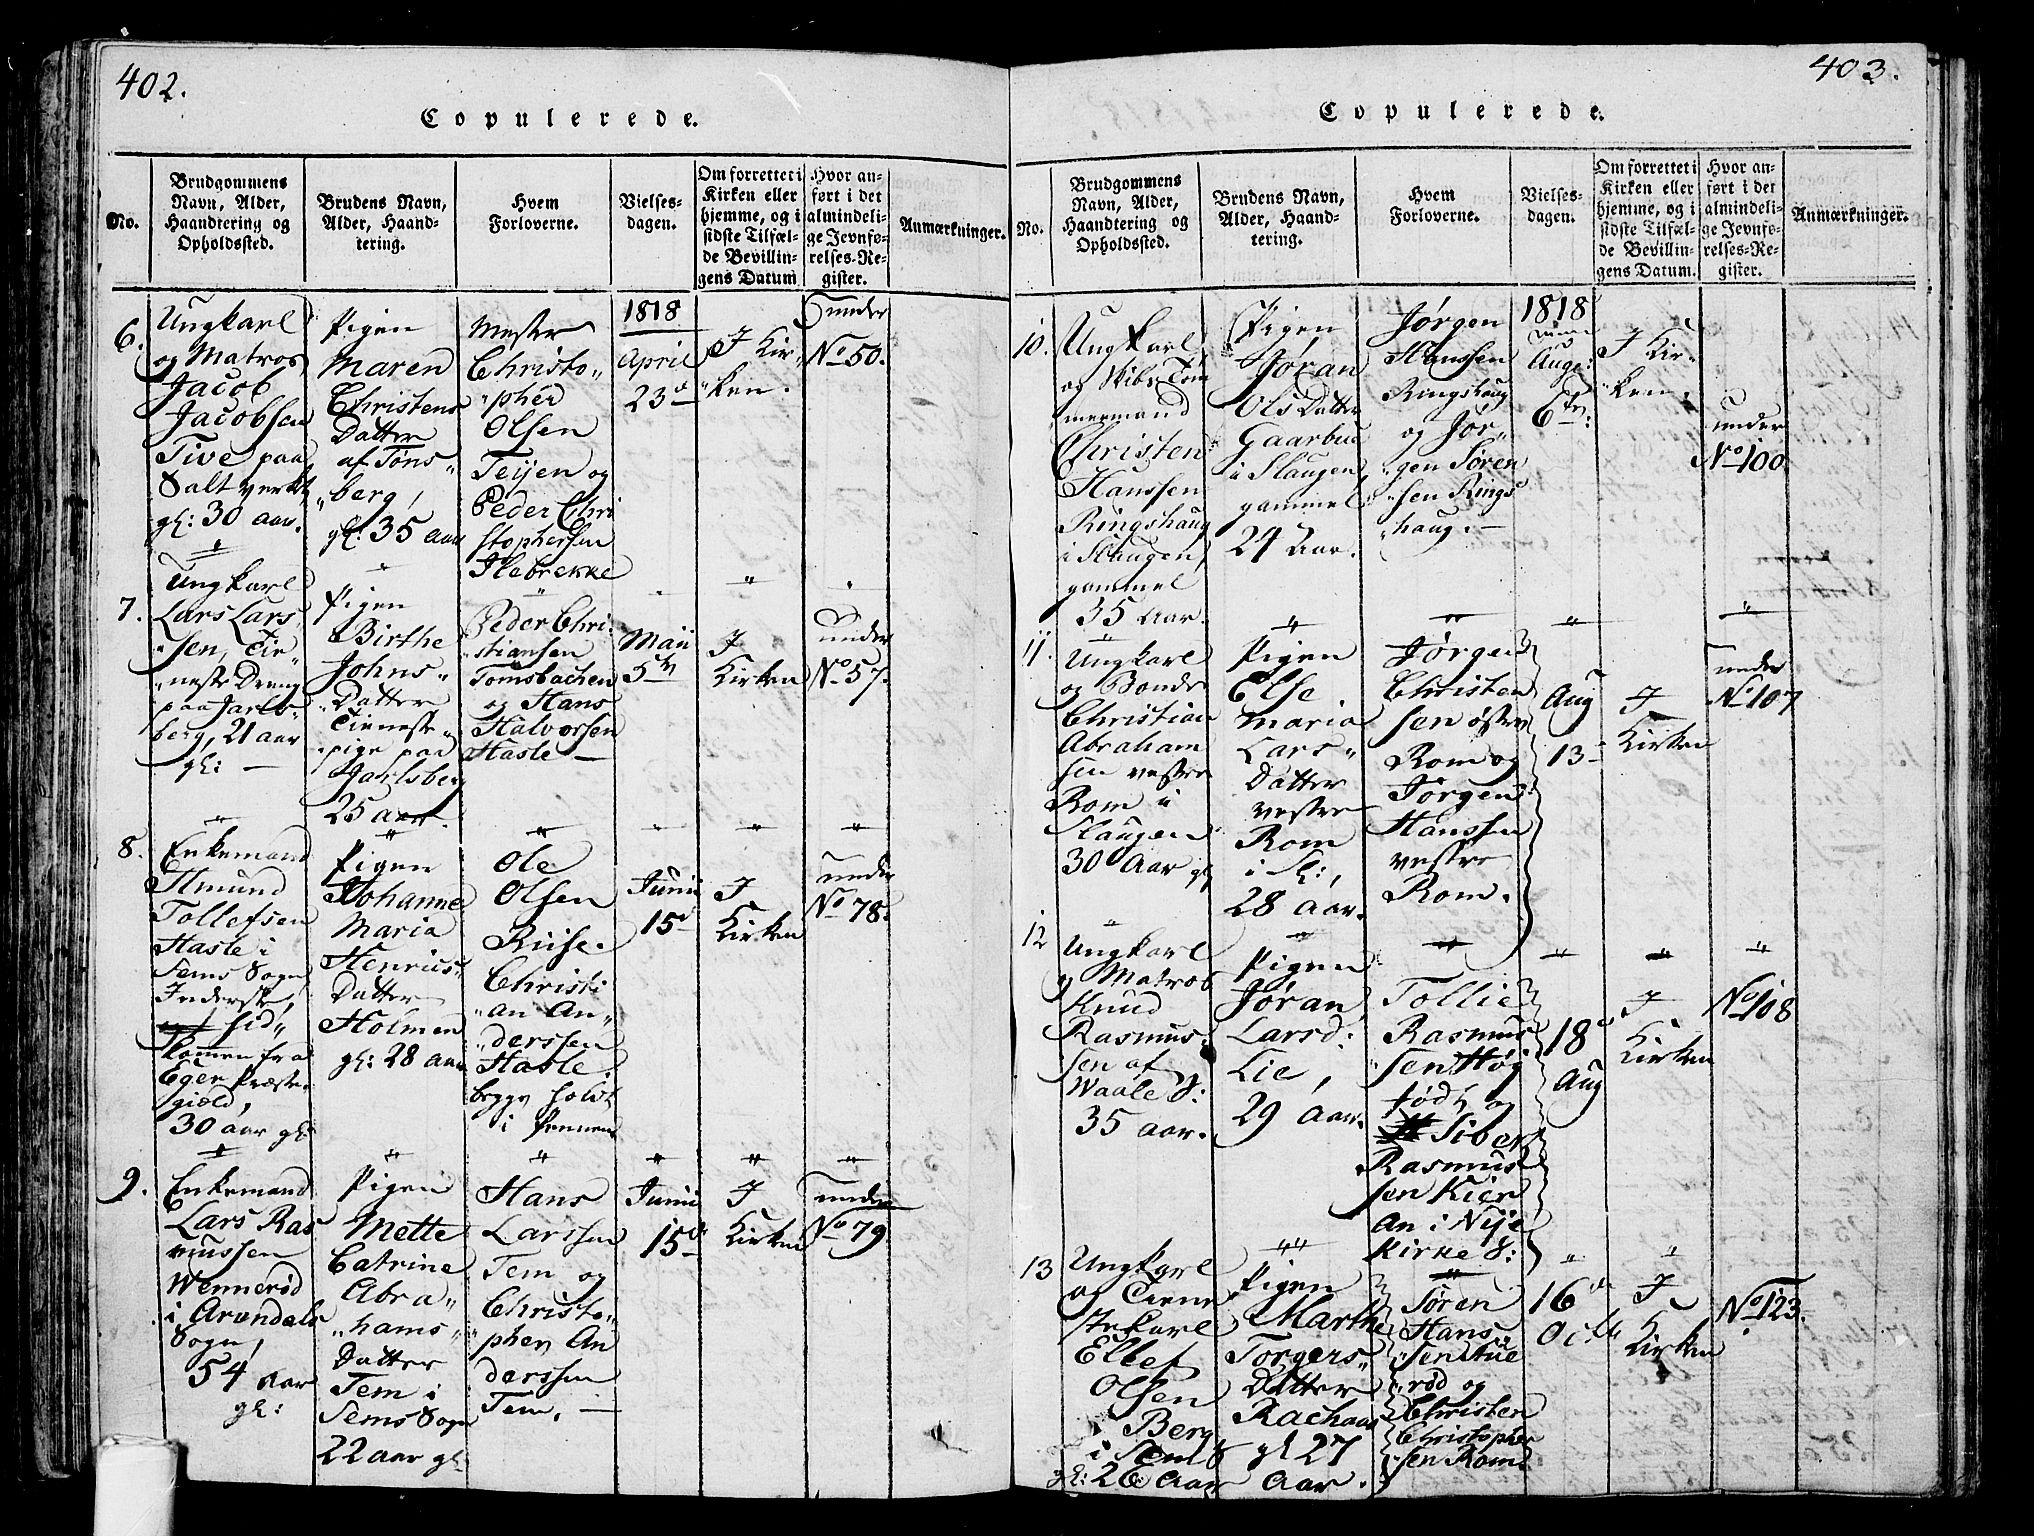 402.
Copulerede.
No.
Brudgommens
Navn, Alder,
Haandtering og
Opholdssted.
Brudens Navn,
Alder, Haand-
tering.
Hvem
Forloverne.
Vielses-
dagen.
Om forrettet i
Kirken eller
hjemme, og i
sidste Tilfæl-
de Bevillin-
gens Datum
Hvor an-
ført i det
almindeli-
ge Jevnfø-
relses-Re-
gister.
Anmærkninger.
6.
Ungkarl
og Matros
Jacob
Jacobsen
Tive paa
Saltverket
gl: 30 aar.
Pigen
Maren
Christens
Datter
af Töns„
„berg,
gl: 35 aar
Mester
Christo„
„pher
Olsen
Teijen og
Peder Chri
stophersen
Ilebrekke
1818
April
23de
I Kir„
„ken.
under
No 50.
7.
Ungkarl
Lars Lars„
„sen, Tie„
„neste Dreng
paa Jarls„
berg, 21 aar
gl: —
Pigen
Birthe
Johns„
„Datter
Tieneste„
„pige paa
Jarlsberg
25 aar.
Peder Chri„
„stiansen
Tomsbachen
og Hans
Halvorsen
Hasle —
Maii
5te
I
Kirken
under
No 57.
8.
Enkemand
Amund
Tollefsen
Hasle i
Sems Sogn
Inderste,
hid„
kommen fra
Eger Præste„
giæld,
30 aar gl:
Pigen
Johanne
Maria
Henrics„
Datter
Holmen
gl: 28 aar
Ole
Olsen
Riise.
Christi
„an An„
„derssen
Hasle,
begge holdt
i Pennen
Junii
15de
I
Kirken
under
No 78.
9.
Enkemand
Lars Ras
mussen
Wennerød
i Arendals
Sogn,
54 Aar
gl:
Pigen
Mette
Catrine
Abra„
„hams„
Datter
Tem i
Sems Sogn
22 aar gl:
Hans
Larssen
Tem og
Christo„
„pher An
derssen
Tem. —
Junii
15de
I
Kirken
under
No 79.
403.
Copulerede.
No.
Brudgommens
Navn, Alder,
Haandtering og
Opholdssted.
Brudens Navn,
Alder, Haand-
tering.
Hvem
Forloverne.
Vielses-
dagen.
Om forrettet i
Kirken eller
hjemme, og i
sidste Tilfæl-
de Bevillin-
gens Datum.
Hvor an-
ført i det
almindeli-
ge Jevnfø-
relses-Re-
gister.
Anmærkninger.
10.
Ungkarl
og Skibs Töm
mermand
Christen
Hanssen
Ringshaug
i Slaugen,
gammel
35 Aar.
Pigen
Jöran
Ols Datter
Gaarbue
i Slaugen,
gammel
24 Aar.
Jörgen
Hanssen
Ringshaug
og Jör„
„gen Sören
„sen Rings
„haug. —
1818
Aug:
6te:
I Kir„
„ken.
under
No 100
11.
Ungkarl
og Bonde
Christian
Abraham
sen vestre
Rom i
Slaugen
30 Aar gl:
Pigen
Else
Maria
Lars„
Datter
vestre
Rom
i Sl:,
28 aar.
Jörgen
Christen
sen östre
Rom og
Jörgen
Hanssen
vestre
Rom.
Aug
13
I
Kirken
under
No 107
12
Ungkarl
og Matros
Knud
Rasmus„
sen af
Waale S:
35 aar.
Pigen
Jöran
Larsd:
Lie,
29 aar.
Tollie
Rasmus
„sen Höj
jödt og
Siber
Rasmus
sen Kier
An i Nije
Kirke S:
18de
Aug
I
Kirken
No 108
13
Ungkarl
og Tiene
stekarl
Ellef
Olsen
Berg
i Sem S
gl: 26 aar
Pigen
Marthe
Torgers„
Datter
Rachaas
gl 27
aar.
Sören
Hans„
„sen Stue
„röd og
Christen
Christopher
sen Rom.
16de
Octb
I
Kirken
No 123.